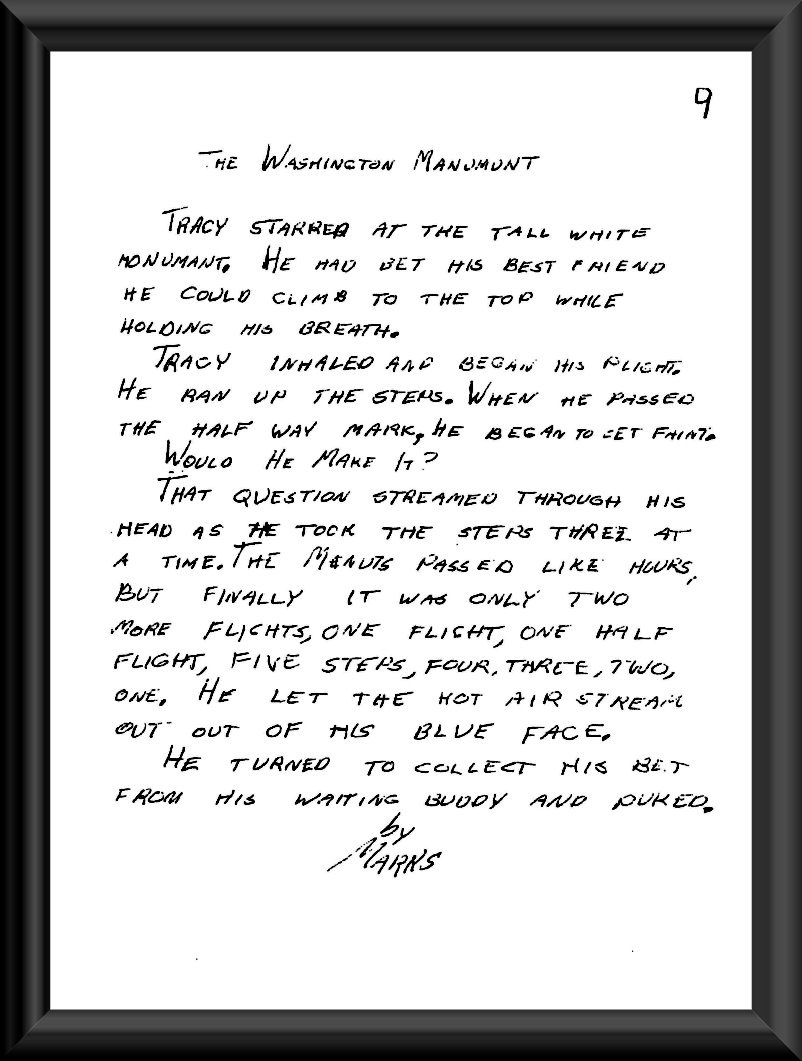 9
THE WASHINGTON MANUMUNT
TRACY STARRED AT THE TALL WHITE
MONUMANT. HE HAD BET HIS BEST FRIEND
HE COULD CLIMB TO THE TOP WHILE
HOLDING HIS BREATH.
TRACY INHALED AND BEGAN HIS FLIGHT.
HE RAN UP THE STEPS. WHEN HE PASSED
THE HALF WAY MARK, HE BEGAN TO GET FAINT.
WOULD HE MAKE IT?
THAT QUESTION STREAMED THROUGH HIS
HEAD AS HE TOOK THE STEPS THREE AT
A TIME. THE MENUTS PASSED LIKE HOURS,
BUT FINALLY IT WAS ONLY TWO
MORE FLIGHTS, ONE FLIGHT, ONE HALF
FLIGHT, FIVE STEPS, FOUR, THREE, TWO,
ONE. HE LET THE HOT AIR STREAM
OUT OUT OF HIS BLUE FACE.
HE TURNED TO COLLECT HIS BET
FROM HIS WAITING BUDDY AND PUKED.
by